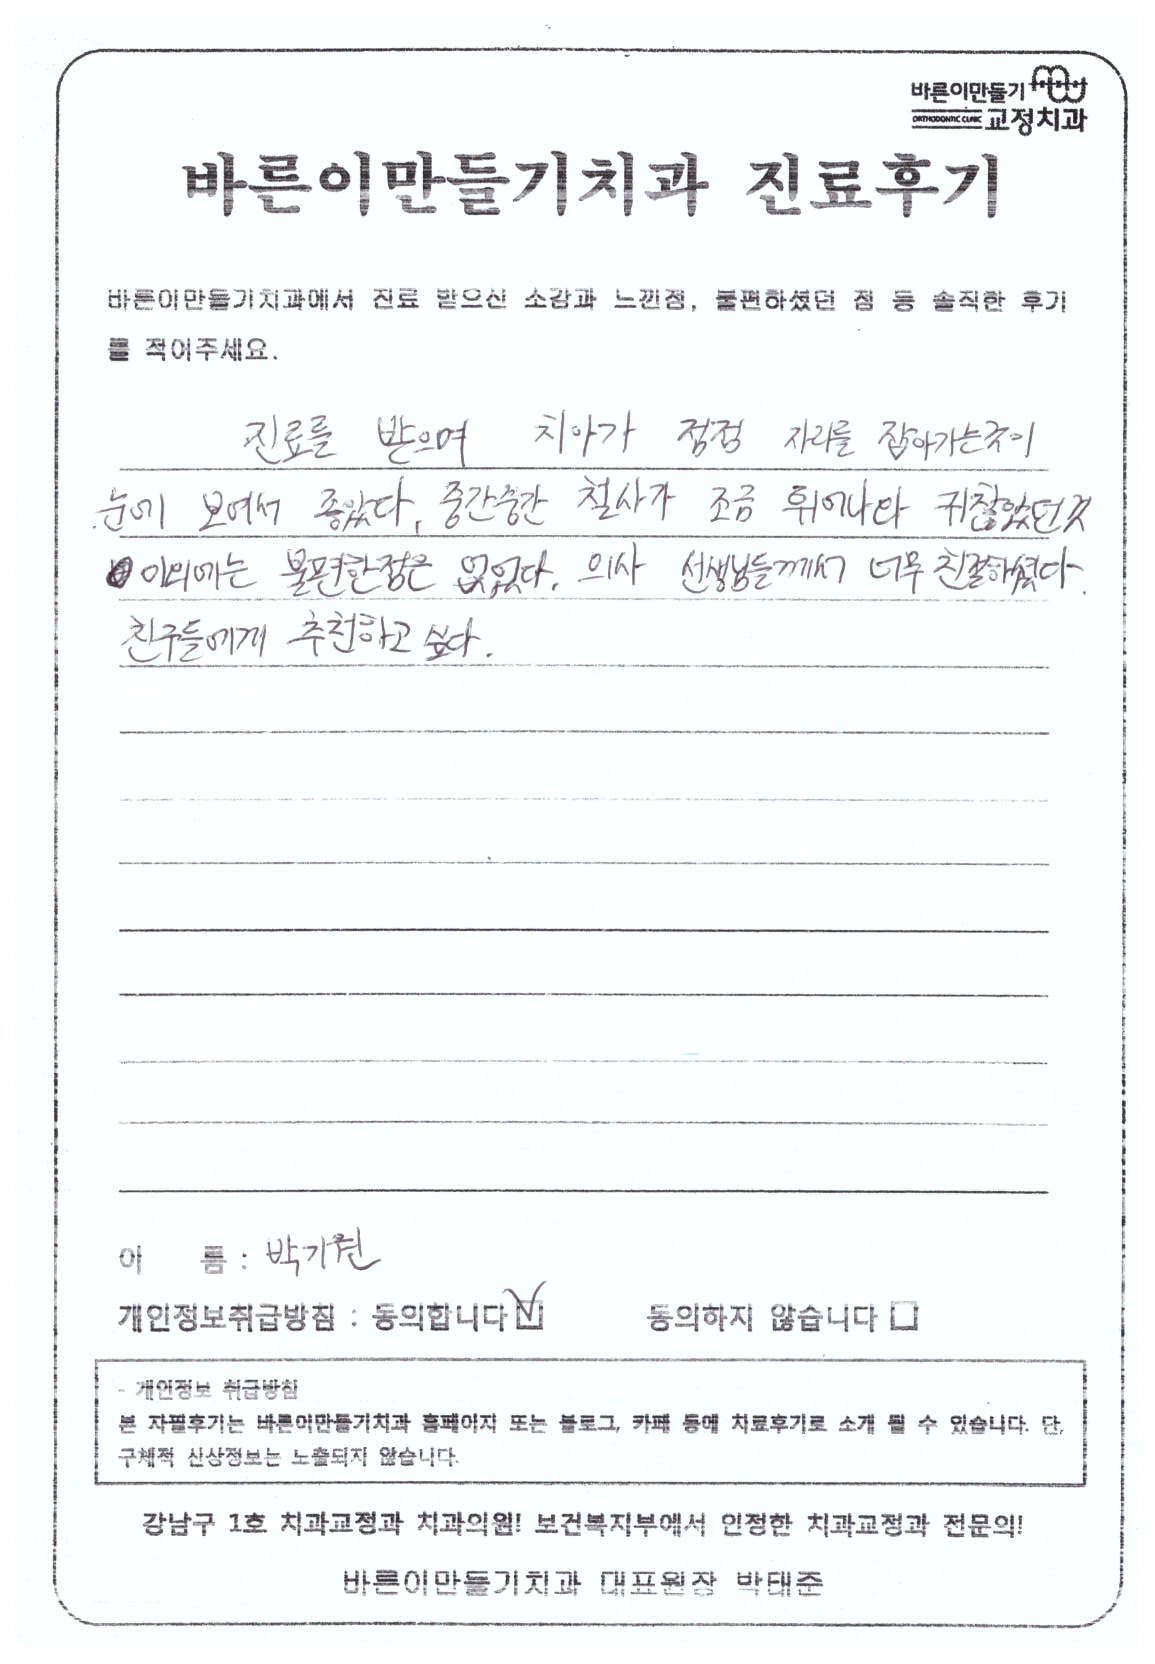 바른이만들기
ORTHODONTIC CLINIC 교정치과
바른이만들기치과 진료후기
바른이만들기치과에서 진료 받으신 소감과 느낀점, 불편하셨던 점 등 솔직한 후기
를 적어주세요.
진료를 받으며 치아가 점점 자리를 잡아가는것이
눈에 보여서 좋았다, 중간중간 철사가 조금 튀어나와 귀찮았던것
이외에는 불편한점은 없었다. 의사 선생님들께서 너무 친절하셨다.
친구들에게 추천하고 싶다.
이 름 : 박기원
개인정보취급방침 : 동의합니다 동의하지 않습니다
- 개인정보 취급방침
본 자필후기는 바른이만들기치과 홈페이지 또는 블로그, 카페 등에 치료후기로 소개 될 수 있습니다. 단,
구체적 신상정보는 노출되지 않습니다.
강남구 1호 치과교정과 치과의원! 보건복지부에서 인정한 치과교정과 전문의!
바른이만들기치과 대표원장 박태준